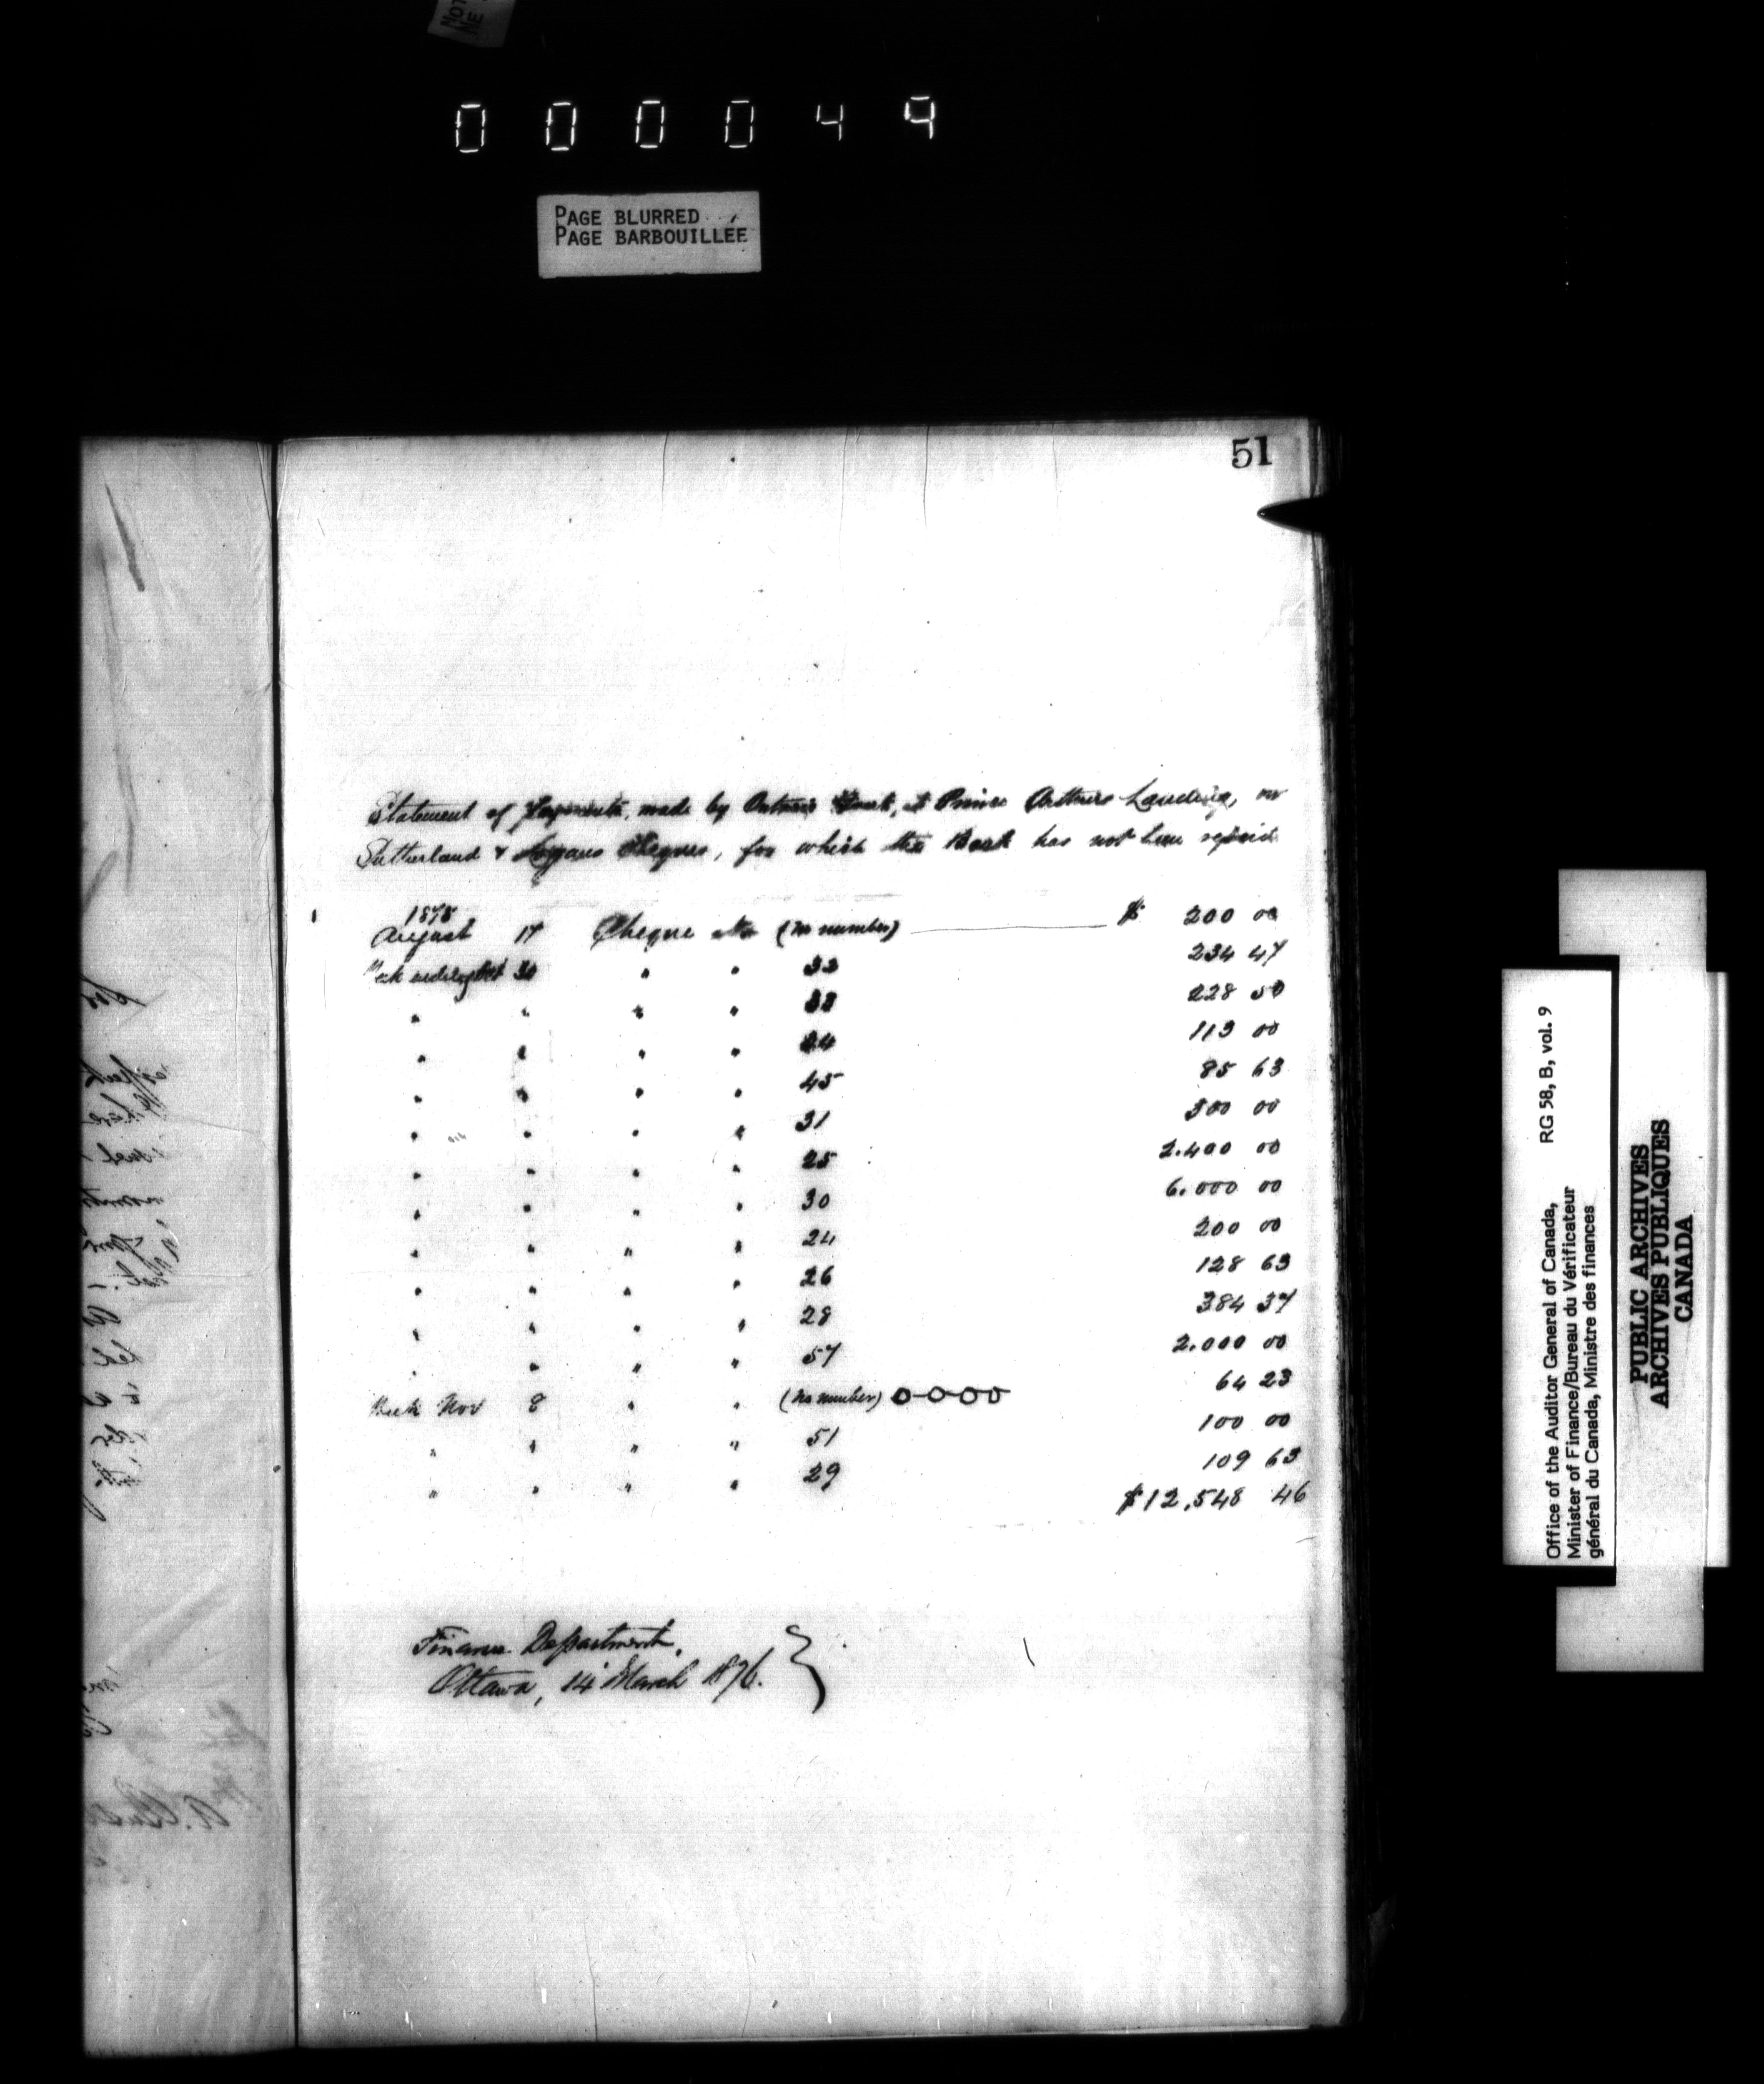 NOT
ME
000049
PAGE BLURRED
PAGE BARBOUILLÉE
51
Statement of Payments, made by Ontario Bank, at Prince Arthurs Landing, on
Sutherland & Logans Cheques, for which the Bank has not been repaid
1875
August 17 Cheque No (no number) $ 200 00
Week ending Oct 30 " " 32 234 47
" " " " 33 228 50
" " " " 113 00
" " " " 45 85 63
" " " " 31 300 00
" " " " 25 2.400 00
" " " " 30 6.000 00
" " " " 24 200 00
" " " " 26 128 63
" " " " 28 384 37
" " " " 57 2.000 00
Week Nov 8 " " (no number) 64 23
" " " " 51 100 00
" " " " 29 109 63
$12,548 46
Finance Department.
Ottawa, 14 March 1876.
Office of the Auditor General of Canada, RG 58, B, vol. 9
Minister of Finance/Bureau du Vérificateur
général du Canada, Ministre des finances
PUBLIC ARCHIVES
ARCHIVES PUBLIQUES
CANADA